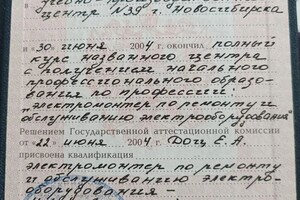 центр №39 г. Новосибирска
и 30 июня 2004 г. окончил полный
курс названного центра
с получением начального
профессионального образо-
вания по профессии:
"электромонтер по ремонту и
обслуживанию электрооборудования"
Решением Государственной аттестационной комиссии
от «22» июня 2004 Доц Е. А.
присвоена квалификация
электромонтер по ремонту
и обслуживанию электро-
оборудования –